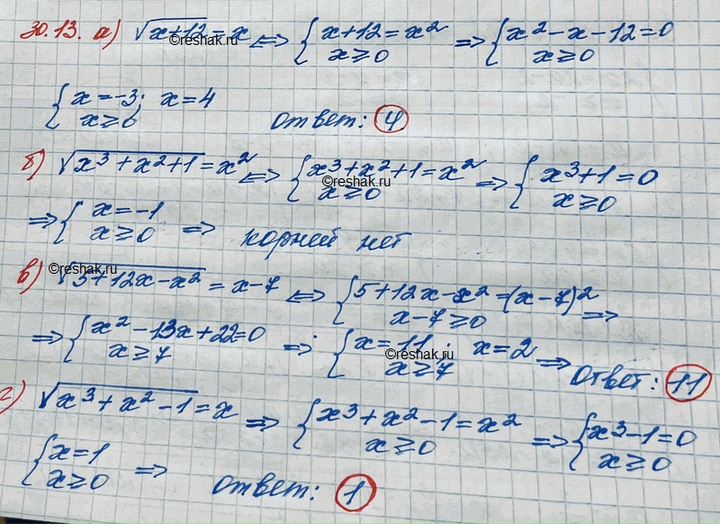 30.13. а) √(x+12) = x ⇔ { x+12 = x²; x ≥ 0 ⇒ { x² - x - 12 = 0; x ≥ 0
©reshak.ru
{ x = -3; x = 4; x ≥ 0 ответ: 4
б) √(x³ + x² + 1) = x² ⇔ { x³ + x² + 1 = x²; x ≥ 0 ⇒ { x³ + 1 = 0; x ≥ 0
©reshak.ru
⇒ { x = -1; x ≥ 0 ⇒ корней нет
©reshak.ru
в) √(5 + 12x - x²) = x - 7 ⇔ { 5 + 12x - x² = (x - 7)²; x - 7 ≥ 0 ⇒
⇒ { x² - 13x + 22 = 0; x ≥ 7 ⇒ { x = 11; x = 2; x ≥ 7 ⇒ ответ: 11
©reshak.ru
г) √(x³ + x² - 1) = x ⇒ { x³ + x² - 1 = x²; x ≥ 0 ⇒ { x³ - 1 = 0; x ≥ 0
{ x = 1; x ≥ 0 ⇒ ответ: 1